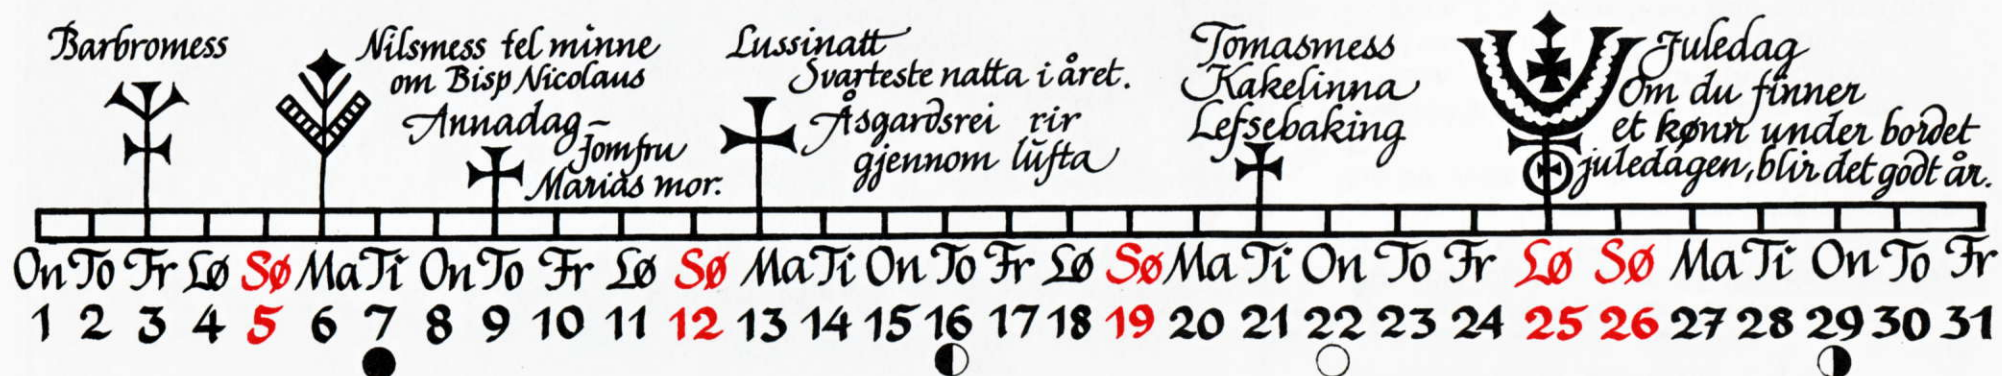 Barbromess
Nilsmess tel minne
om Bisp Nicolaus
Annadag -
Jomfru
Marias mor.
Lussinatt
Svarteste natta i året.
Åsgardsrei rir
gjennom lufta
Tomasmess
Kakelinna
Lefsebaking
Juledag
Om du finner
et kønn under bordet
juledagen, blir det godt år.
On To Fr Lø Sø Ma Ti On To Fr Lø Sø Ma Ti On To Fr Lø Sø Ma Ti On To Fr Lø Sø Ma Ti On To Fr
1 2 3 4 5 6 7 8 9 10 11 12 13 14 15 16 17 18 19 20 21 22 23 24 25 26 27 28 29 30 31